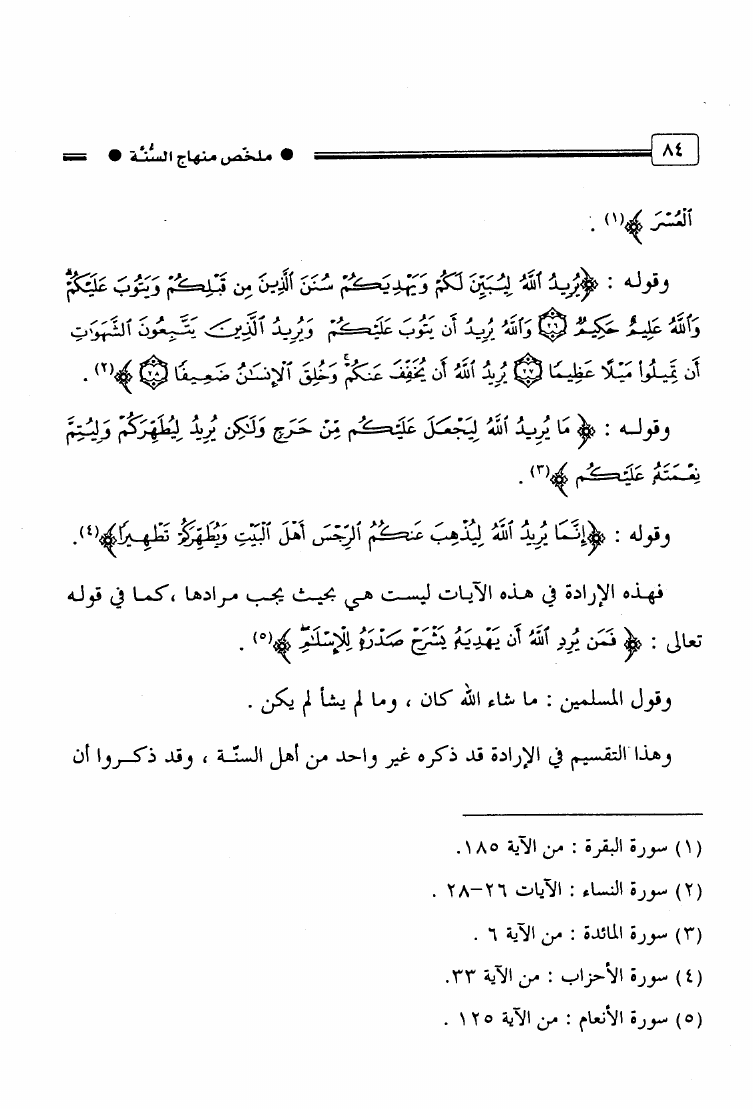 ٨٤ ● ملخّص منهاج السُّنَّة ●
ٱلْعُسْرَ ﴾(١) .
وقوله : ﴿يُرِيدُ ٱللَّهُ لِيُبَيِّنَ لَكُمْ وَيَهْدِيَكُمْ سُنَنَ ٱلَّذِينَ مِن قَبْلِكُمْ وَيَتُوبَ عَلَيْكُمْ ۗ
وَٱللَّهُ عَلِيمٌ حَكِيمٌ ۝٢٦ وَٱللَّهُ يُرِيدُ أَن يَتُوبَ عَلَيْكُمْ وَيُرِيدُ ٱلَّذِينَ يَتَّبِعُونَ ٱلشَّهَوَٰتِ
أَن تَمِيلُوا۟ مَيْلًا عَظِيمًا ۝٢٧ يُرِيدُ ٱللَّهُ أَن يُخَفِّفَ عَنكُمْ ۚ وَخُلِقَ ٱلْإِنسَٰنُ ضَعِيفًا ۝٢٨ ﴾(٢) .
وقوله : ﴿ مَا يُرِيدُ ٱللَّهُ لِيَجْعَلَ عَلَيْكُم مِّنْ حَرَجٍ وَلَٰكِن يُرِيدُ لِيُطَهِّرَكُمْ وَلِيُتِمَّ
نِعْمَتَهُۥ عَلَيْكُمْ ﴾(٣) .
وقوله : ﴿إِنَّمَا يُرِيدُ ٱللَّهُ لِيُذْهِبَ عَنكُمُ ٱلرِّجْسَ أَهْلَ ٱلْبَيْتِ وَيُطَهِّرَكُمْ تَطْهِيرًا﴾(٤).
فهذه الإرادة في هذه الآيات ليست هي بحيث يجب مرادها ،كما في قوله
تعالى : ﴿ فَمَن يُرِدِ ٱللَّهُ أَن يَهْدِيَهُۥ يَشْرَحْ صَدْرَهُۥ لِلْإِسْلَٰمِ ۖ ﴾(٥) .
وقول المسلمين : ما شاء الله كان ، وما لم يشأ لم يكن .
وهذا التقسيم في الإرادة قد ذكره غير واحد من أهل السنّة ، وقد ذكروا أن
(١) سورة البقرة : من الآية ١٨٥.
(٢) سورة النساء : الآيات ٢٦–٢٨ .
(٣) سورة المائدة : من الآية ٦ .
(٤) سورة الأحزاب : من الآية ٣٣.
(٥) سورة الأنعام : من الآية ١٢٥ .